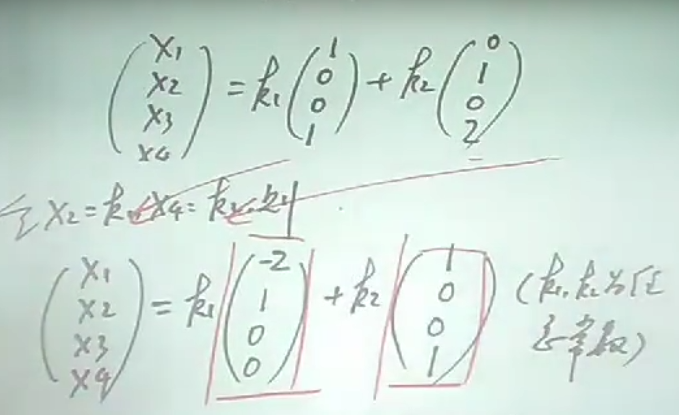 (x1 x2 x3 x4) = k1 (1 0 0 1) + k2 (0 1 0 2)
令 x2 = k1, x4 = k2, 则
(x1 x2 x3 x4) = k1 (-2 1 0 0) + k2 (1 0 0 1) (k1, k2 为任
意常数)